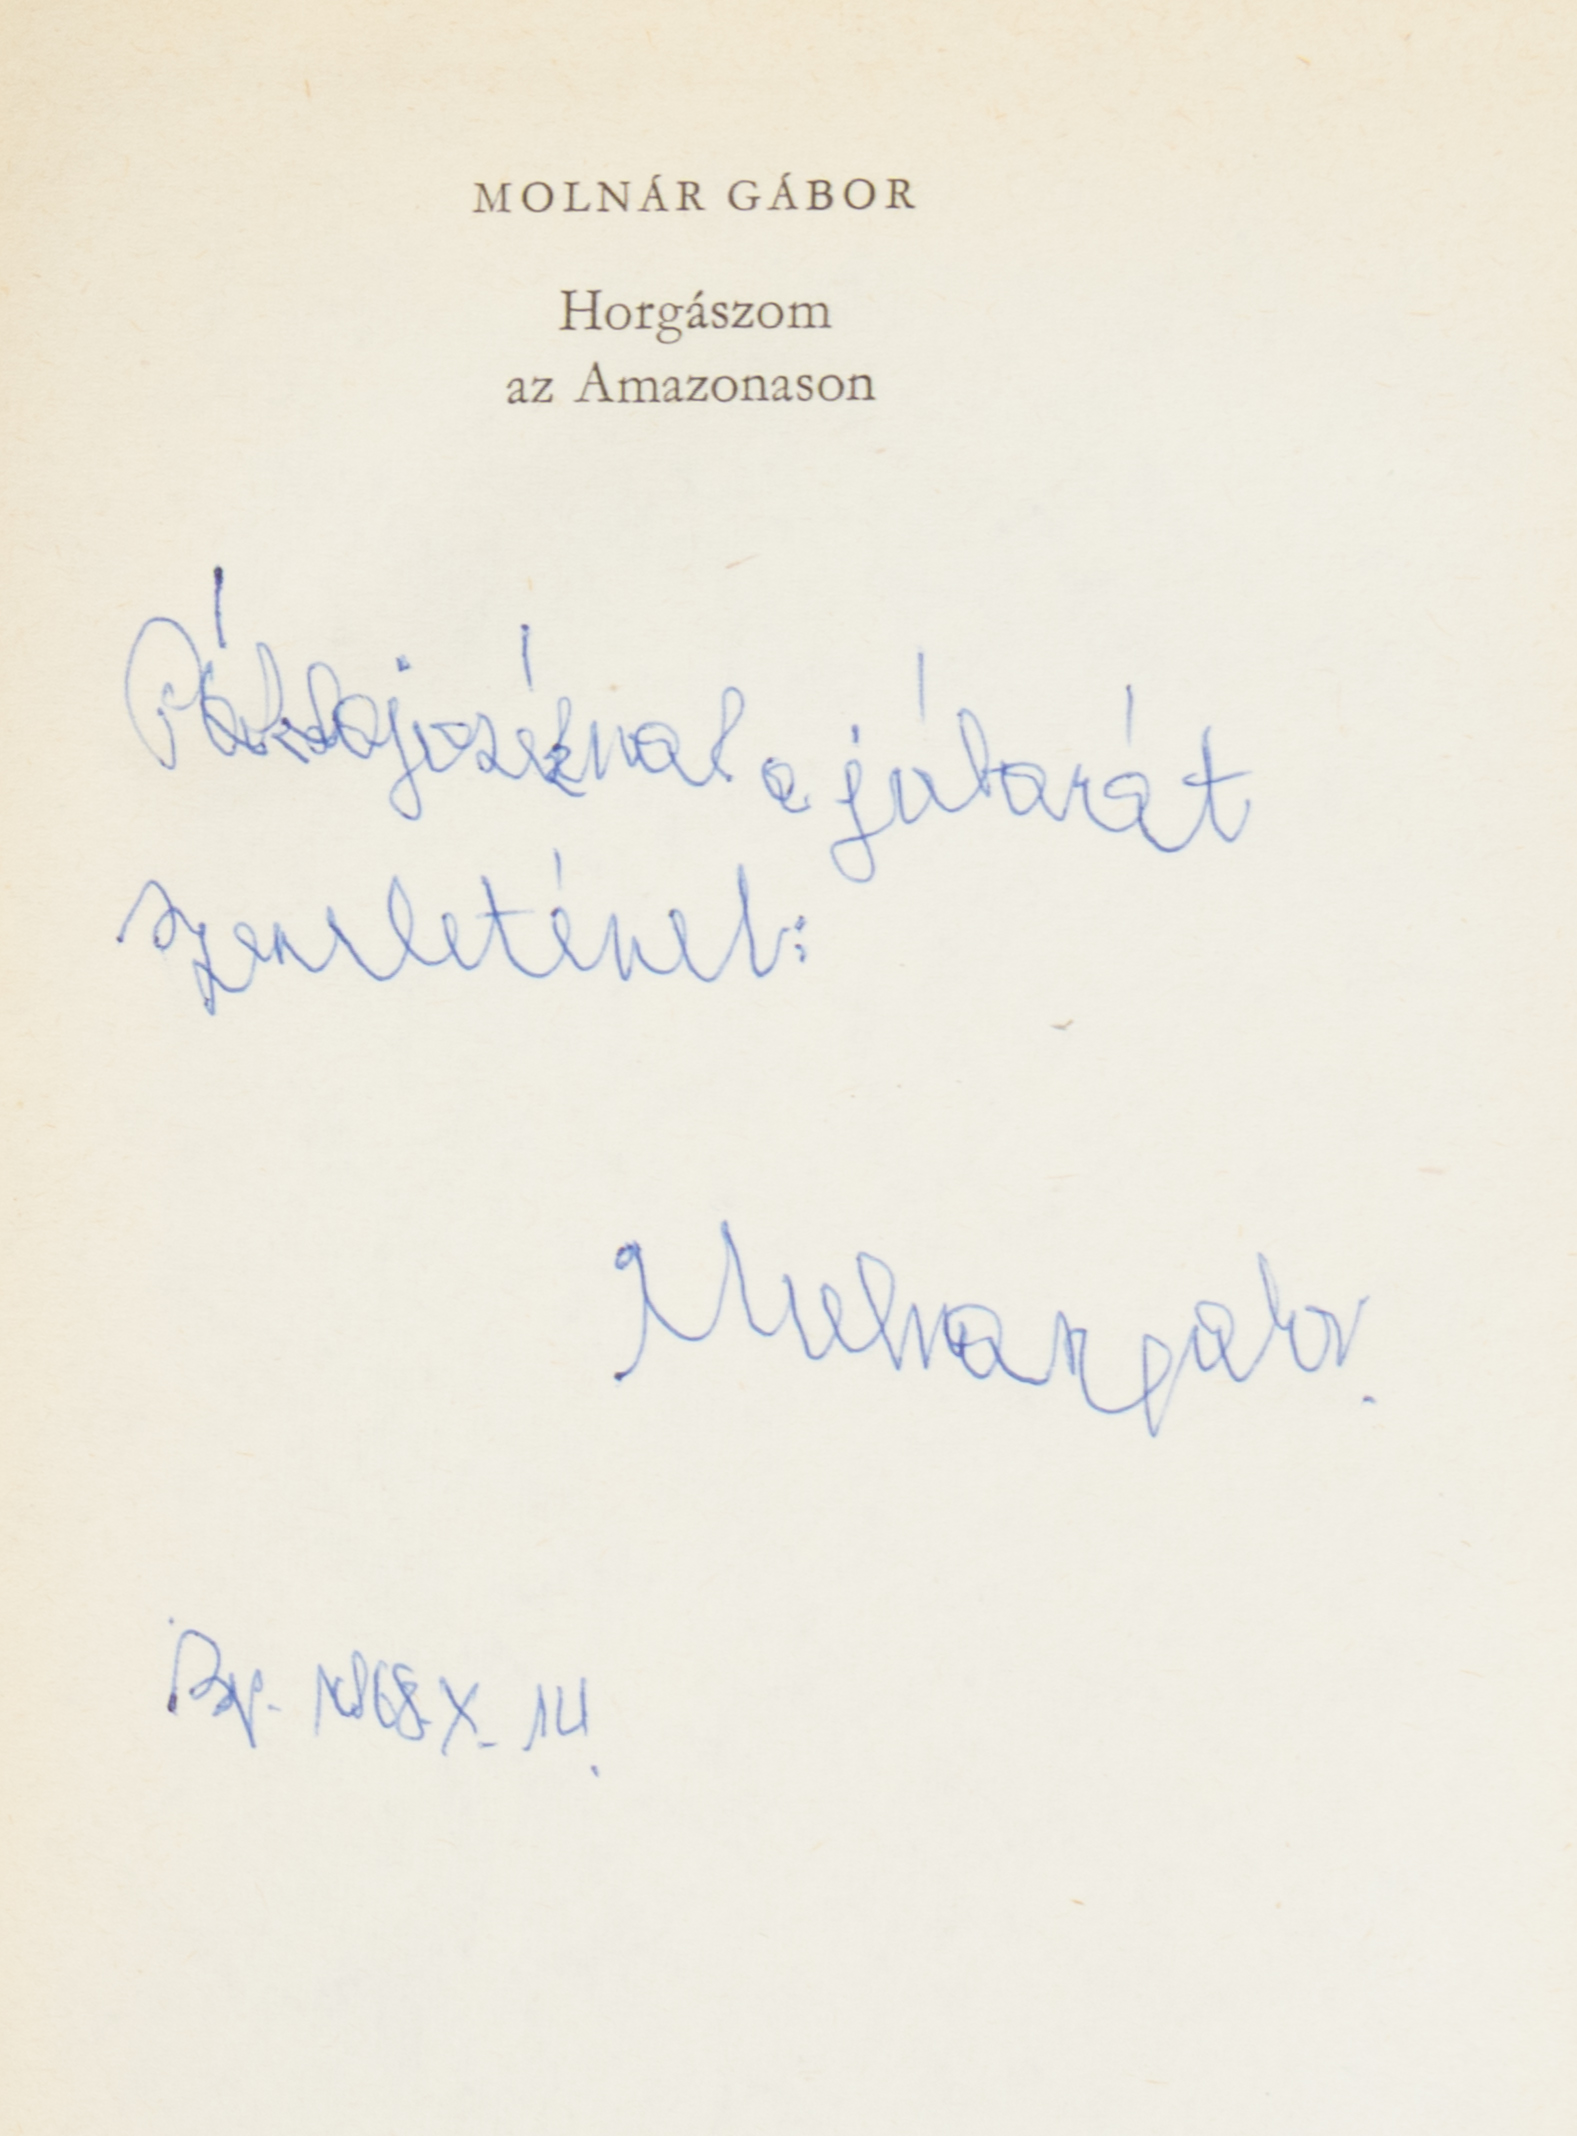 MOLNÁR GÁBOR
Horgászom
az Amazonason
a jú barát
szeretetének:
Molnár Gábor.
Bp. 1968. X. 14.